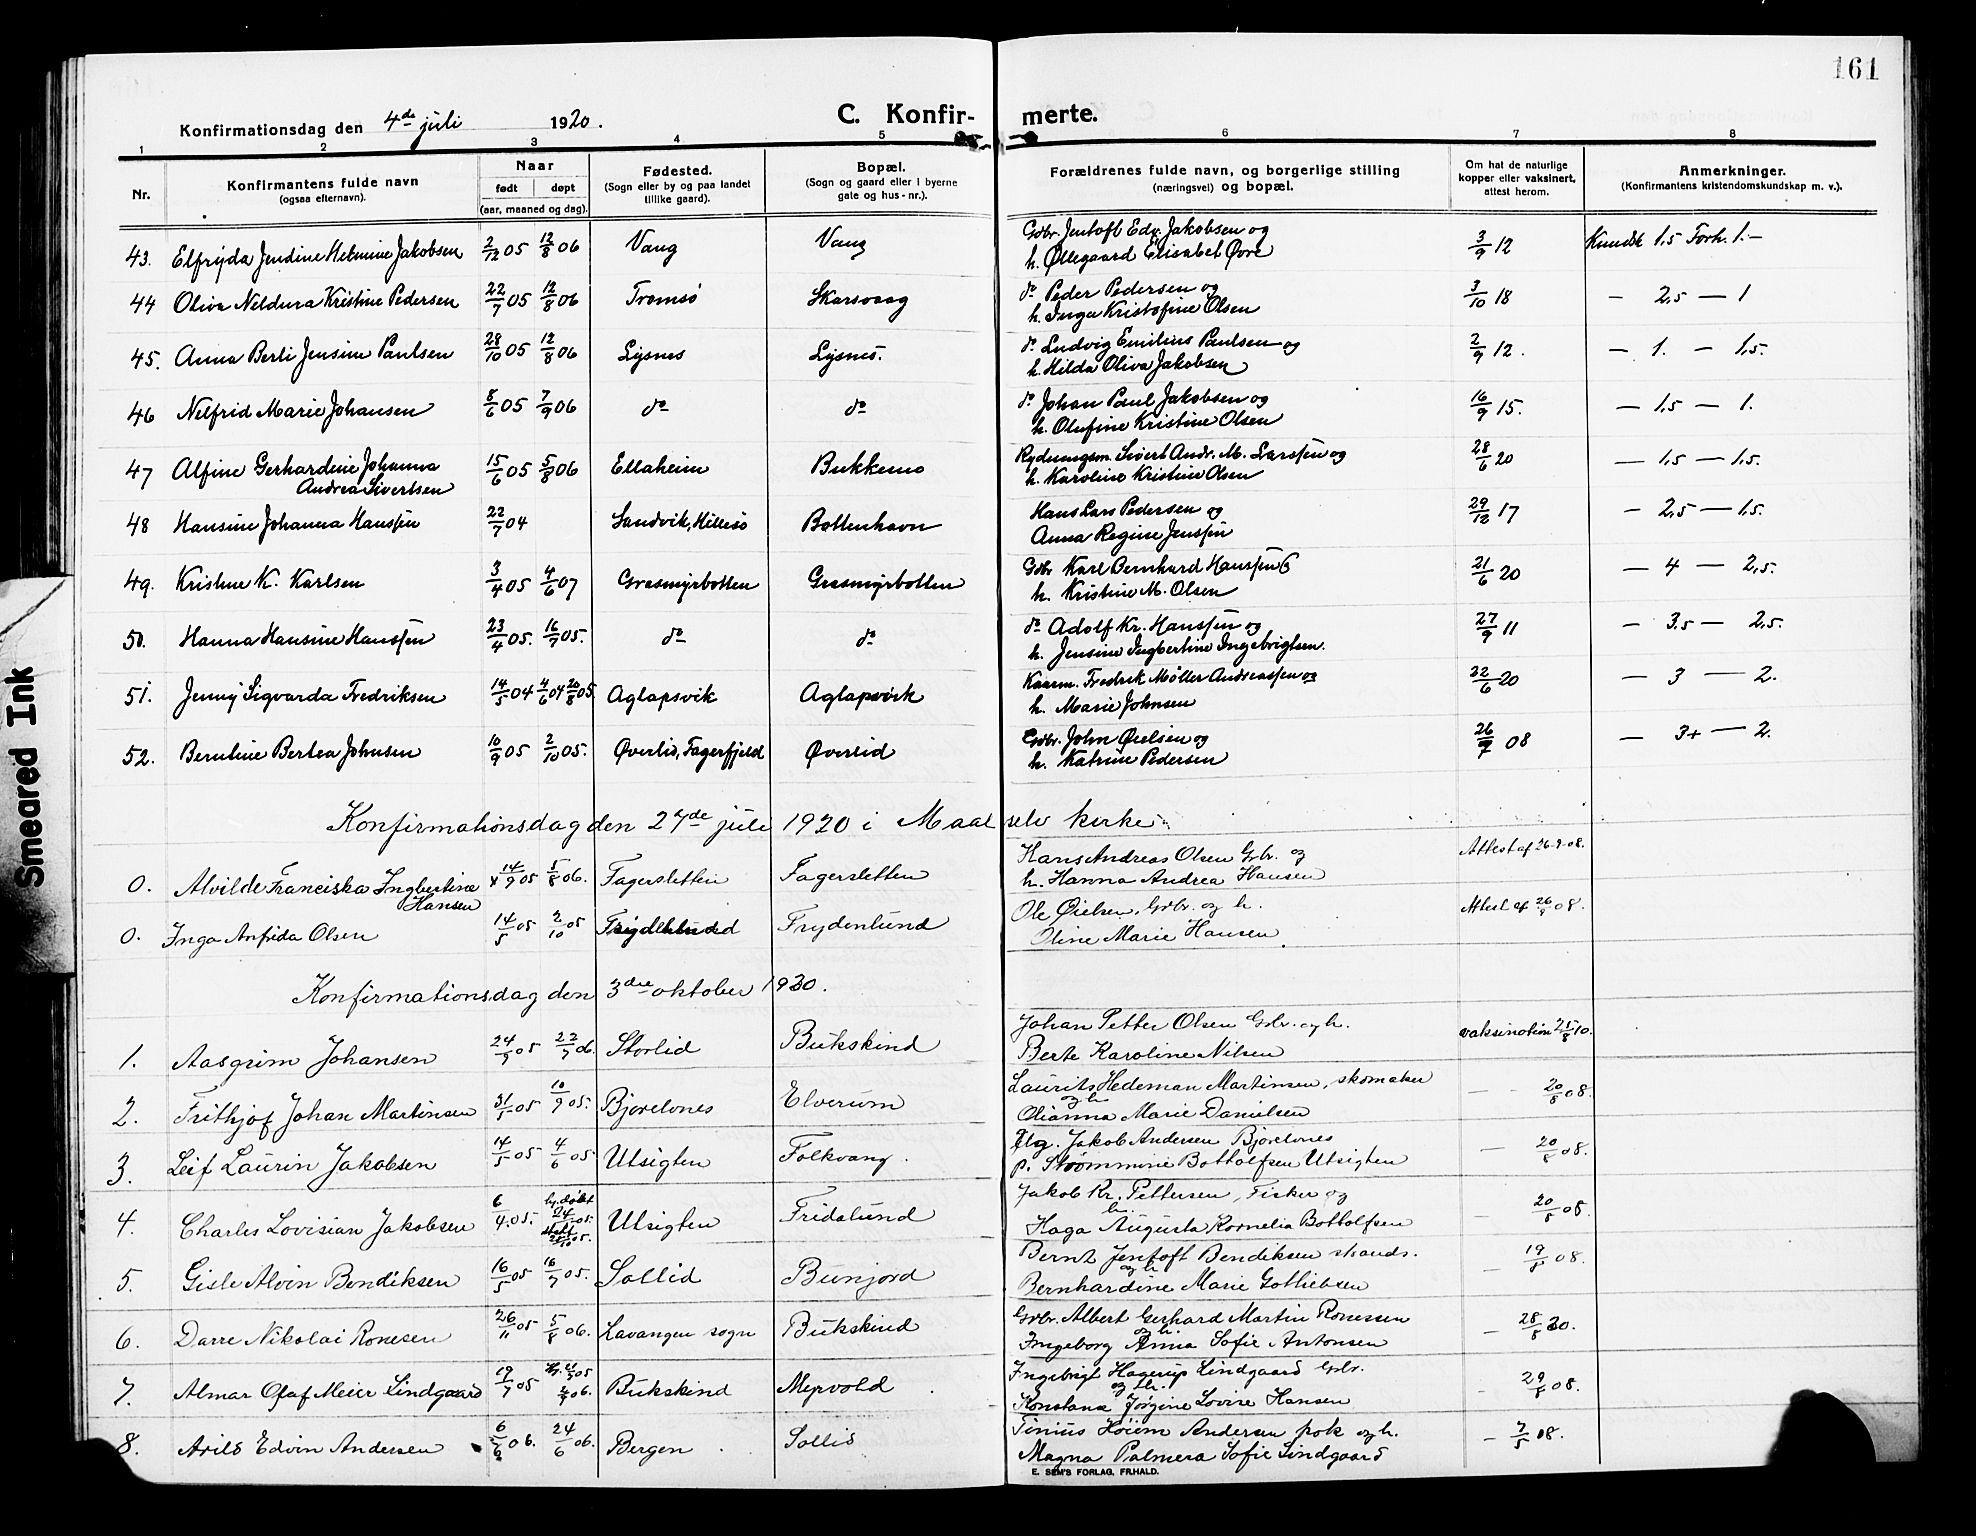 161
Konfirmationsdag den 4de juli 1920.
C. Konfirmerte.
1 2 3 4 5 6 7 8
Nr. Konfirmantens fulde navn (ogsaa efternavn). Naar født døpt (aar, maaned og dag). Fødested. (Sogn eller by og paa landet tillike gaard). Bopæl. (Sogn og gaard eller i byerne gate og hus-nr.). Forældrenes fulde navn, og borgerlige stilling (næringsvei) og bopæl. Om hat de naturlige kopper eller vaksinert, attest herom. Anmerkninger. (Konfirmantens kristendomskundskap m. v.).
43. Elfryda Jendine Helmine Jakobsen 2/12 05 12/8 06 Vang Vang Gdbr. Jentoft Edv. Jakobsen og 3/9 12 Kundsk 1,5 Forh. 1.-
h. Øllegaard Elisabet Øvre
44 Oliva Neldura Kristine Pedersen 22/7 05 12/8 06 Tromsø Skarsvaag do Peder Pedersen og 3/10 18 — 2,5 — 1
h. Inga Kristofine Olsen
45. Anna Berli Jensine Paulsen 28/10 05 12/8 06 Lysnes Lysnes. do Ludvig Emilius Paulsen og 2/9 12. — 1. — 1,5.
h. Hilda Oliva Jakobsen
46 Nelfrid Marie Johansen 8/6 05 7/9 06 do do do Johan Paul Jakobsen og 16/9 15. — 1,5 — 1.
h. Olufine Kristine Olsen
47 Alfine Gerhardine Johanna 15/6 05 5/8 06 Ellaheim Bukkemo Rydningsm. Sivert Andr. M. Larssen og 28/6 20 — 1,5 — 1,5.
Andrea Sivertsen h. Karoline Kristine Olsen
48 Hansine Johanna Hanssen 22/7 04 Sandvik, Hillesø Bottenhavn Hans Lars Pedersen og 29/12 17 — 2,5 — 1,5.
Anna Regine Jenssen
49. Kristine K. Karlsen 3/4 05 4/6 07 Grasmyrbotten Grasmyrbotten Gdbr Karl Bernhard Hanssen 21/6 20 — 4 — 2,5.
h. Kristine M. Olsen
50. Hanna Hansine Hanssen 23/4 05. 16/7 05. do do do Adolf Kr. Hanssen og 27/9 11 — 3.5 — 2,5.
h. Jensine Ingbertine Ingebrigtsen.
51. Jenny Sigvarda Fredriksen 14/5 04 4/6 04 20/8 05. Aglapsvik Aglapsvik Kaarm. Fredrik Møller Andreassen og 22/6 20 — 3 — 2.
h. Marie Johnsen
52. Berntine Bertea Johnsen 10/9 05 2/10 05. Øverlid, Fagerfjeld Øverlid Gdbr. John Øielsen og 26/9 08 — 3+ — 2.
h. Katrine Pedersen
Konfirmationsdag den 27de juli 1920 i Maalselv kirke.
0. Alvilde Franciska Ingbertine 14/9 05 5/8 06. Fagersletten Fagersletten Hans Andreas Olsen Gbr. og Attest af 26-9-08.
Hansen h. Hanna Andrea Hansen
0. Inga Anfrida Olsen 14/5 05 2/10 05 Frydenlund Frydenlund Ole Øielsen, Gdbr. og h. Attest af 26/9 08.
Oline Marie Hansen.
Konfirmationsdag den 3dre oktober 1920.
1. Aasgrim Johansen 24/9 05 22/7 06. Storlid Bukskind Johan Petter Olsen Gdbr. og h. vaksination 25/8 10.
Berte Karoline Nilsen
2. Frithjof Johan Martinsen 31/5 05 10/9 05. Bjorelvnes Elverum Laurits Hedeman Martinsen, skomaker — 20/8 08.
og h. Olianna Marie Danielsen
3. Leif Laurin Jakobsen 14/5 05 4/6 05 Utsigten Folkvang. Ung. Jakob Andersen Bjorelvnes — 20/8 08.
p. Strømmine Bottolfsen Utsigten
4. Charles Lovisian Jakobsen 6/4 05. hj.døbt 24/ 05. Utsigten Fridalund Jakob Kr. Pettersen, Fisker og — 20/8 08.
h. Haga Augusta Kornelia Bottolfsen
5. Gisle Alvin Bendiksen 16/5 05 16/7 05. Sollid Bunjord Bernt Jentoft Bendiksen strands. — 19/8 08.
og h. Bernhardine Marie Gotliebsen
6. Darre Nikolai Ronesen 26/11 05 5/8 06. Lavangen sogn Bukskind Gdbr. Albert Gerhard Martin Ronessen — 28/8 20.
og h. Ingeborg Anna Sofie Antonsen
7. Almar Olaf Meier Lindgaard 19/7 05 Bukskind Myrvold Ingebrigt Hagerup Lindgaard Gdbr. — 29/8 08.
og h. Konstana Jørgine Lovise Hansen
8. Arild Edvin Andersen 6/6 06. 24/6 06. Bergen Sollid Tinius Høiem Andersen pok og h. — 7/5 08.
Magna Palmera Sofie Lindgaard
E. SEM'S FORLAG, FR.HALD.
Smeared Ink